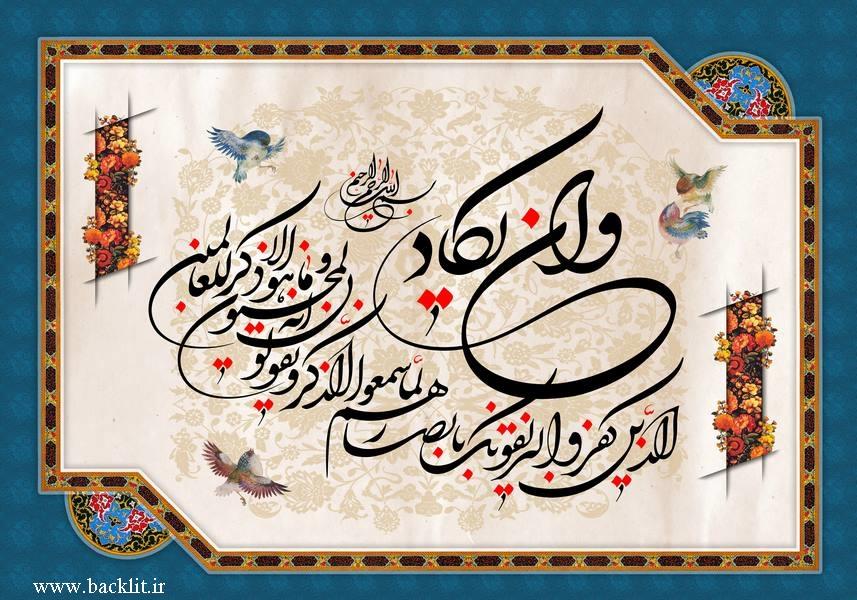 بسم الله الرحمن الرحیم
وان یکاد
الذین کفروا لیزلقونک بابصارهم
لما سمعوا الذکر و یقولون
انه لمجنون
و ما هو الا ذکر للعالمین
www.backlit.ir